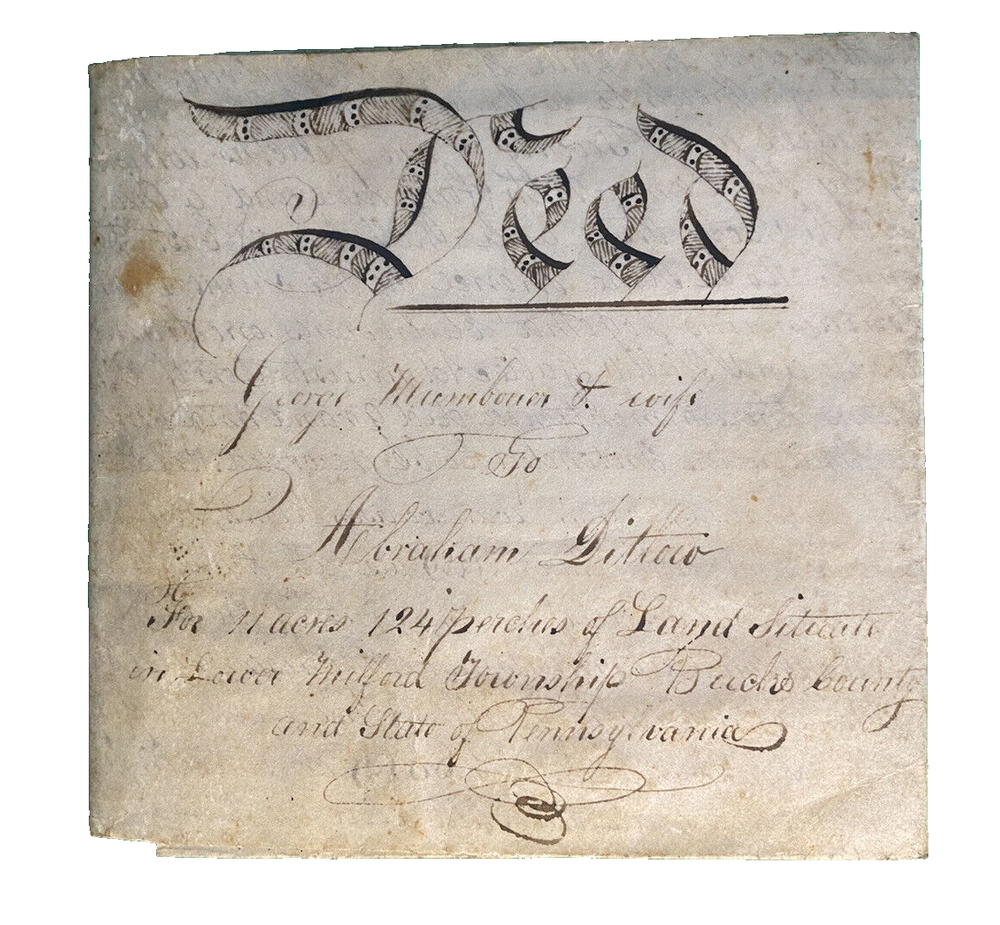 Deed
George Mumbower & wife
To
Abraham Ditlow
For 11 acres 124 perches of Land Situate
in Lower Milford Township Bucks County
and State of Pennsylvania